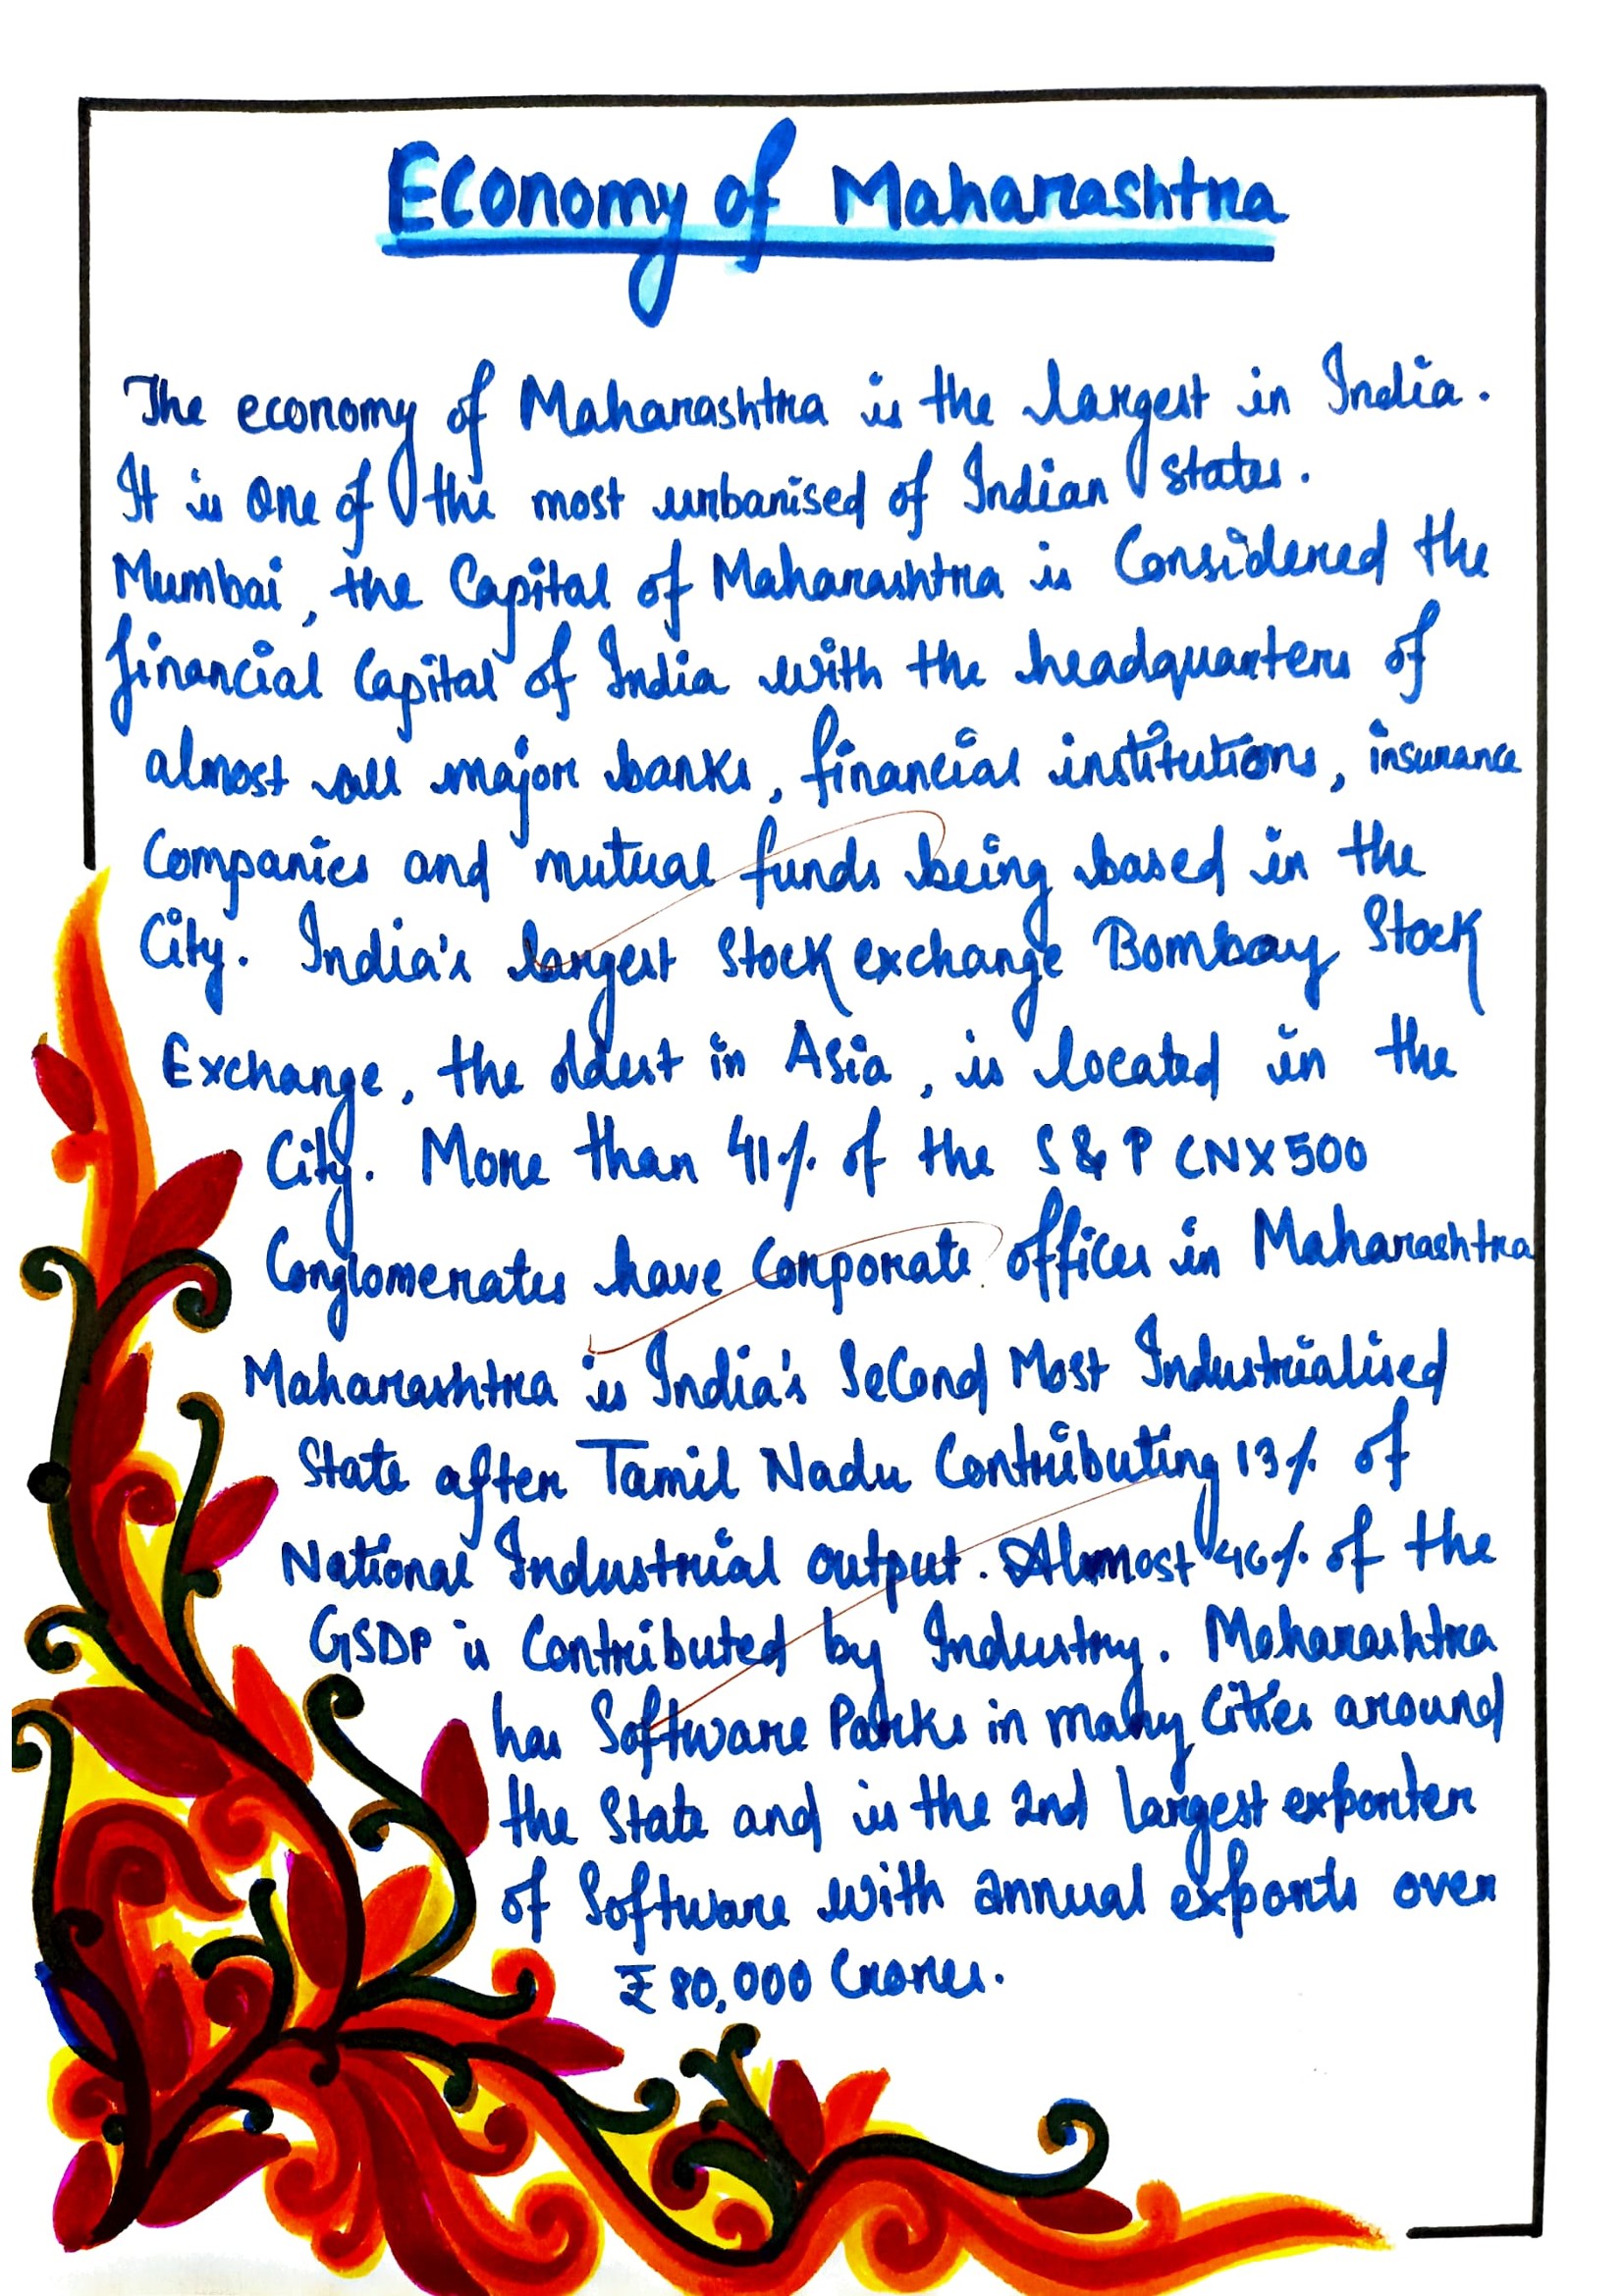 Economy of Maharashtra
The economy of Maharashtra is the largest in India.
It is one of the most urbanised of Indian states.
Mumbai, the Capital of Maharashtra is Considered the
financial Capital of India with the headquarters of
almost all major banks, financial institutions, insurance
Companies and mutual funds being based in the
City. India's largest Stock exchange Bombay Stock
Exchange, the oldest in Asia, is located in the
City. More than 41% of the S & P CNX 500
Conglomerates have Corporate offices in Maharashtra
Maharashtra is India's Second Most Industrialised
State after Tamil Nadu Contributing 13% of
National Industrial output. Almost 46% of the
GSDP is Contributed by Industry. Maharashtra
has Software Parks in many Cities around
the State and is the 2nd largest exporter
of Software with annual exports over
₹ 80,000 Crores.